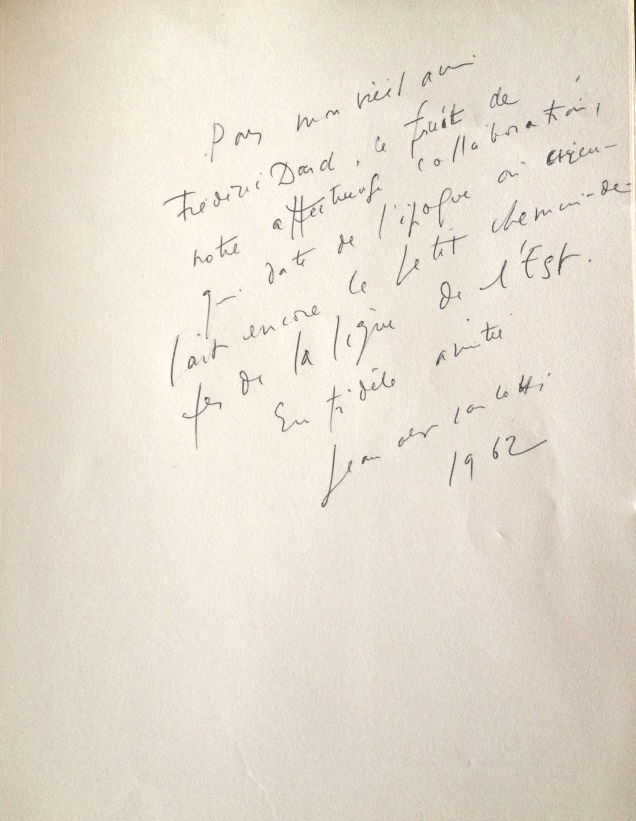 Pour mon vieil ami
Frédéric Dard, ce fruit de
notre affectueuse collaboration,
qui date de l'époque où circu-
lait encore le petit chemin-de-
fer de la ligne de l'Est.
En fidèle amitié
Jean
1962